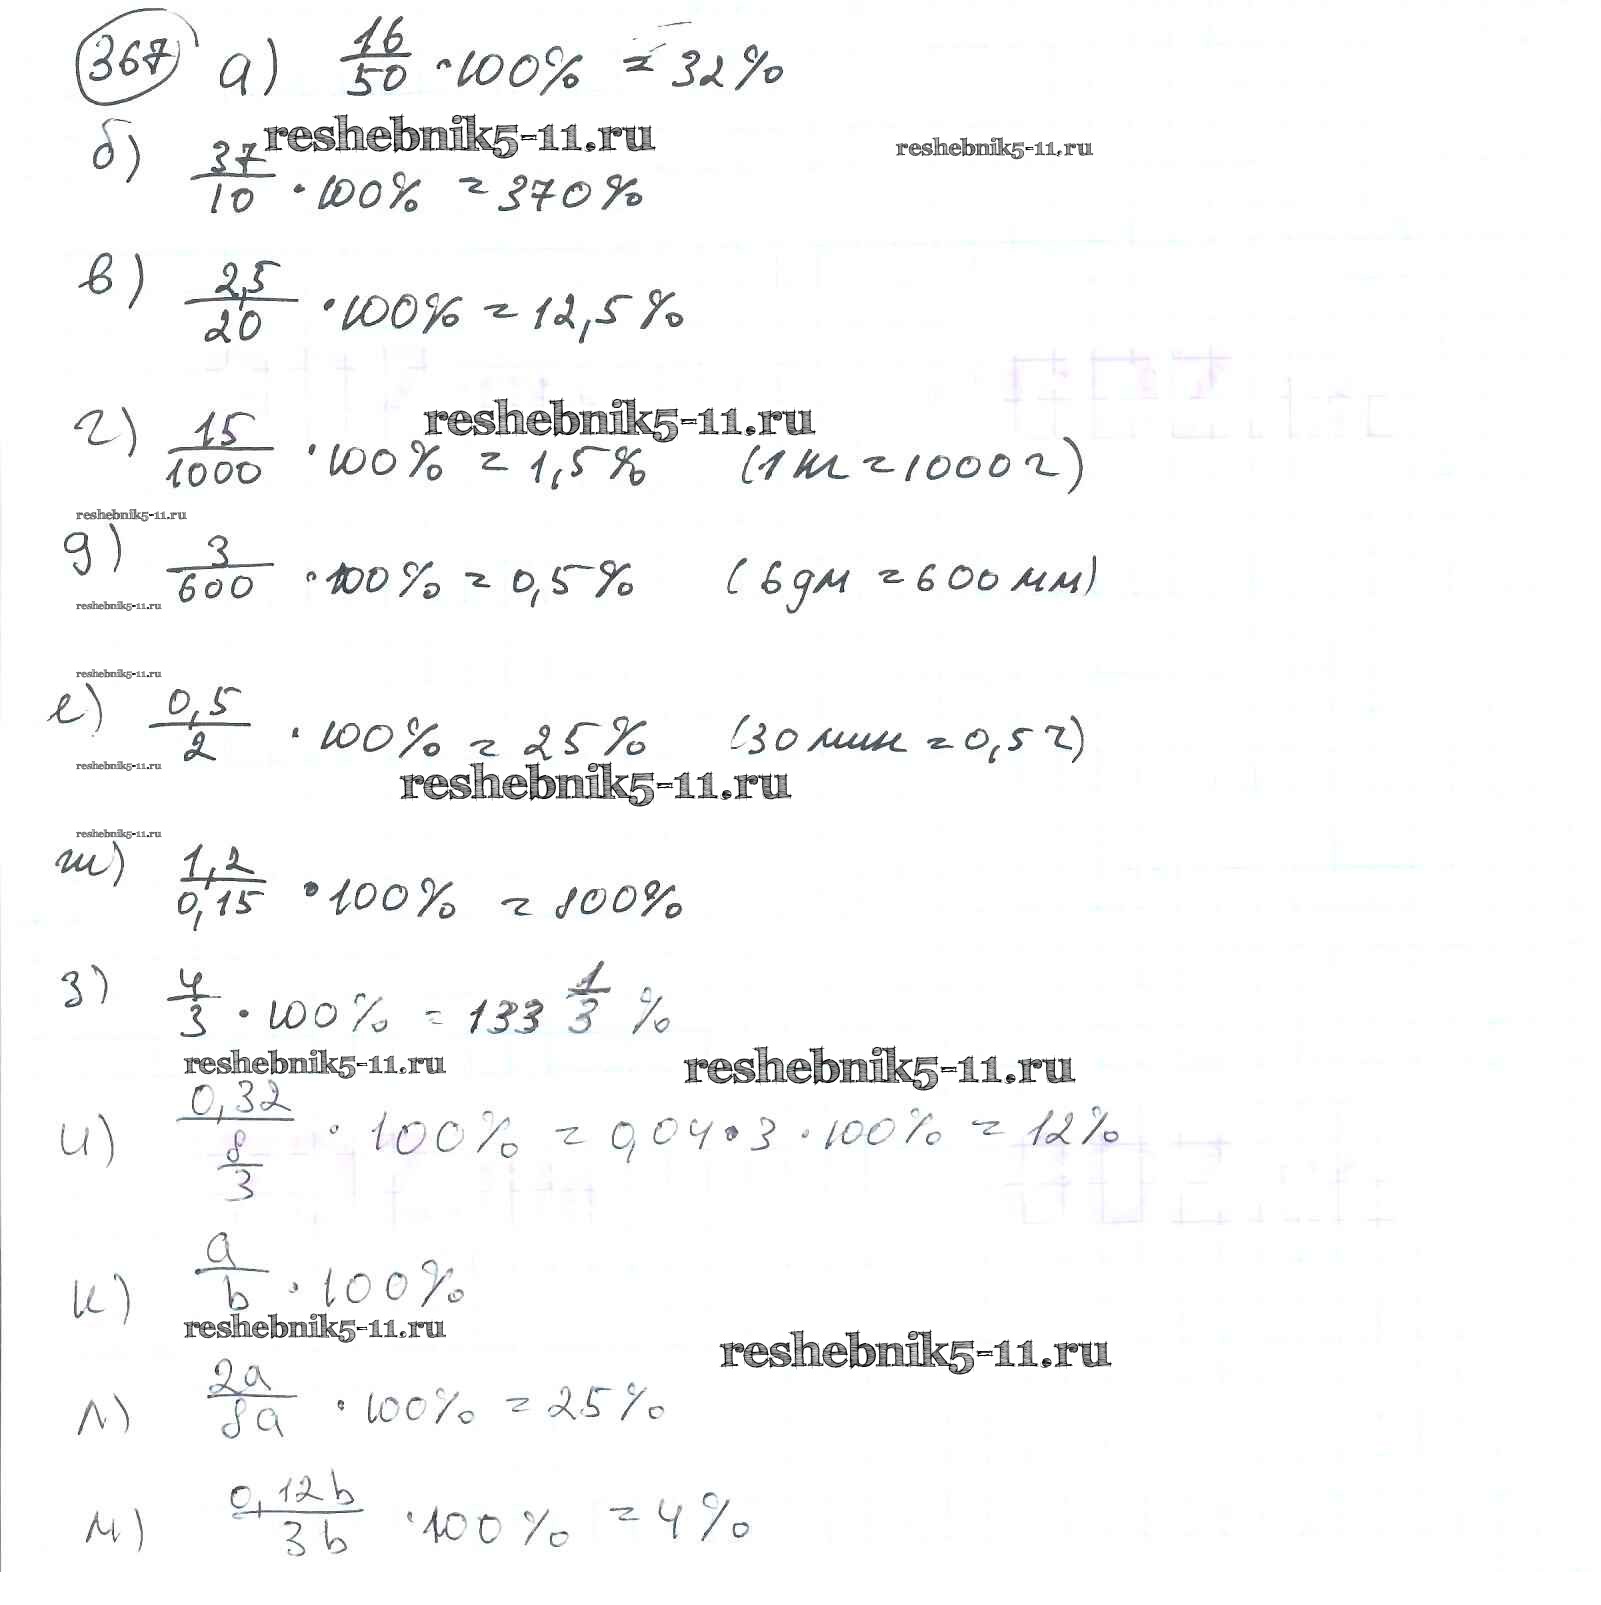 367 а) 16/50 · 100% = 32%
reshebnik5-11.ru
reshebnik5-11.ru
б) 37/10 · 100% = 370%
в) 2,5/20 · 100% = 12,5%
reshebnik5-11.ru
г) 15/1000 · 100% = 1,5% (1 кг = 1000 г)
reshebnik5-11.ru
д) 3/600 · 100% = 0,5% (6 дм = 600 мм)
reshebnik5-11.ru
reshebnik5-11.ru
е) 0,5/2 · 100% = 25% (30 мин = 0,5 ч)
reshebnik5-11.ru
reshebnik5-11.ru
reshebnik5-11.ru
ж) 1,2/0,15 · 100% = 800%
з) 4/3 · 100% = 133 1/3 %
reshebnik5-11.ru
reshebnik5-11.ru
и) 0,32/(8/3) · 100% = 0,04 · 3 · 100% = 12%
к) a/b · 100%
reshebnik5-11.ru
reshebnik5-11.ru
л) 2a/8a · 100% = 25%
м) 0,12b/3b · 100% = 4%